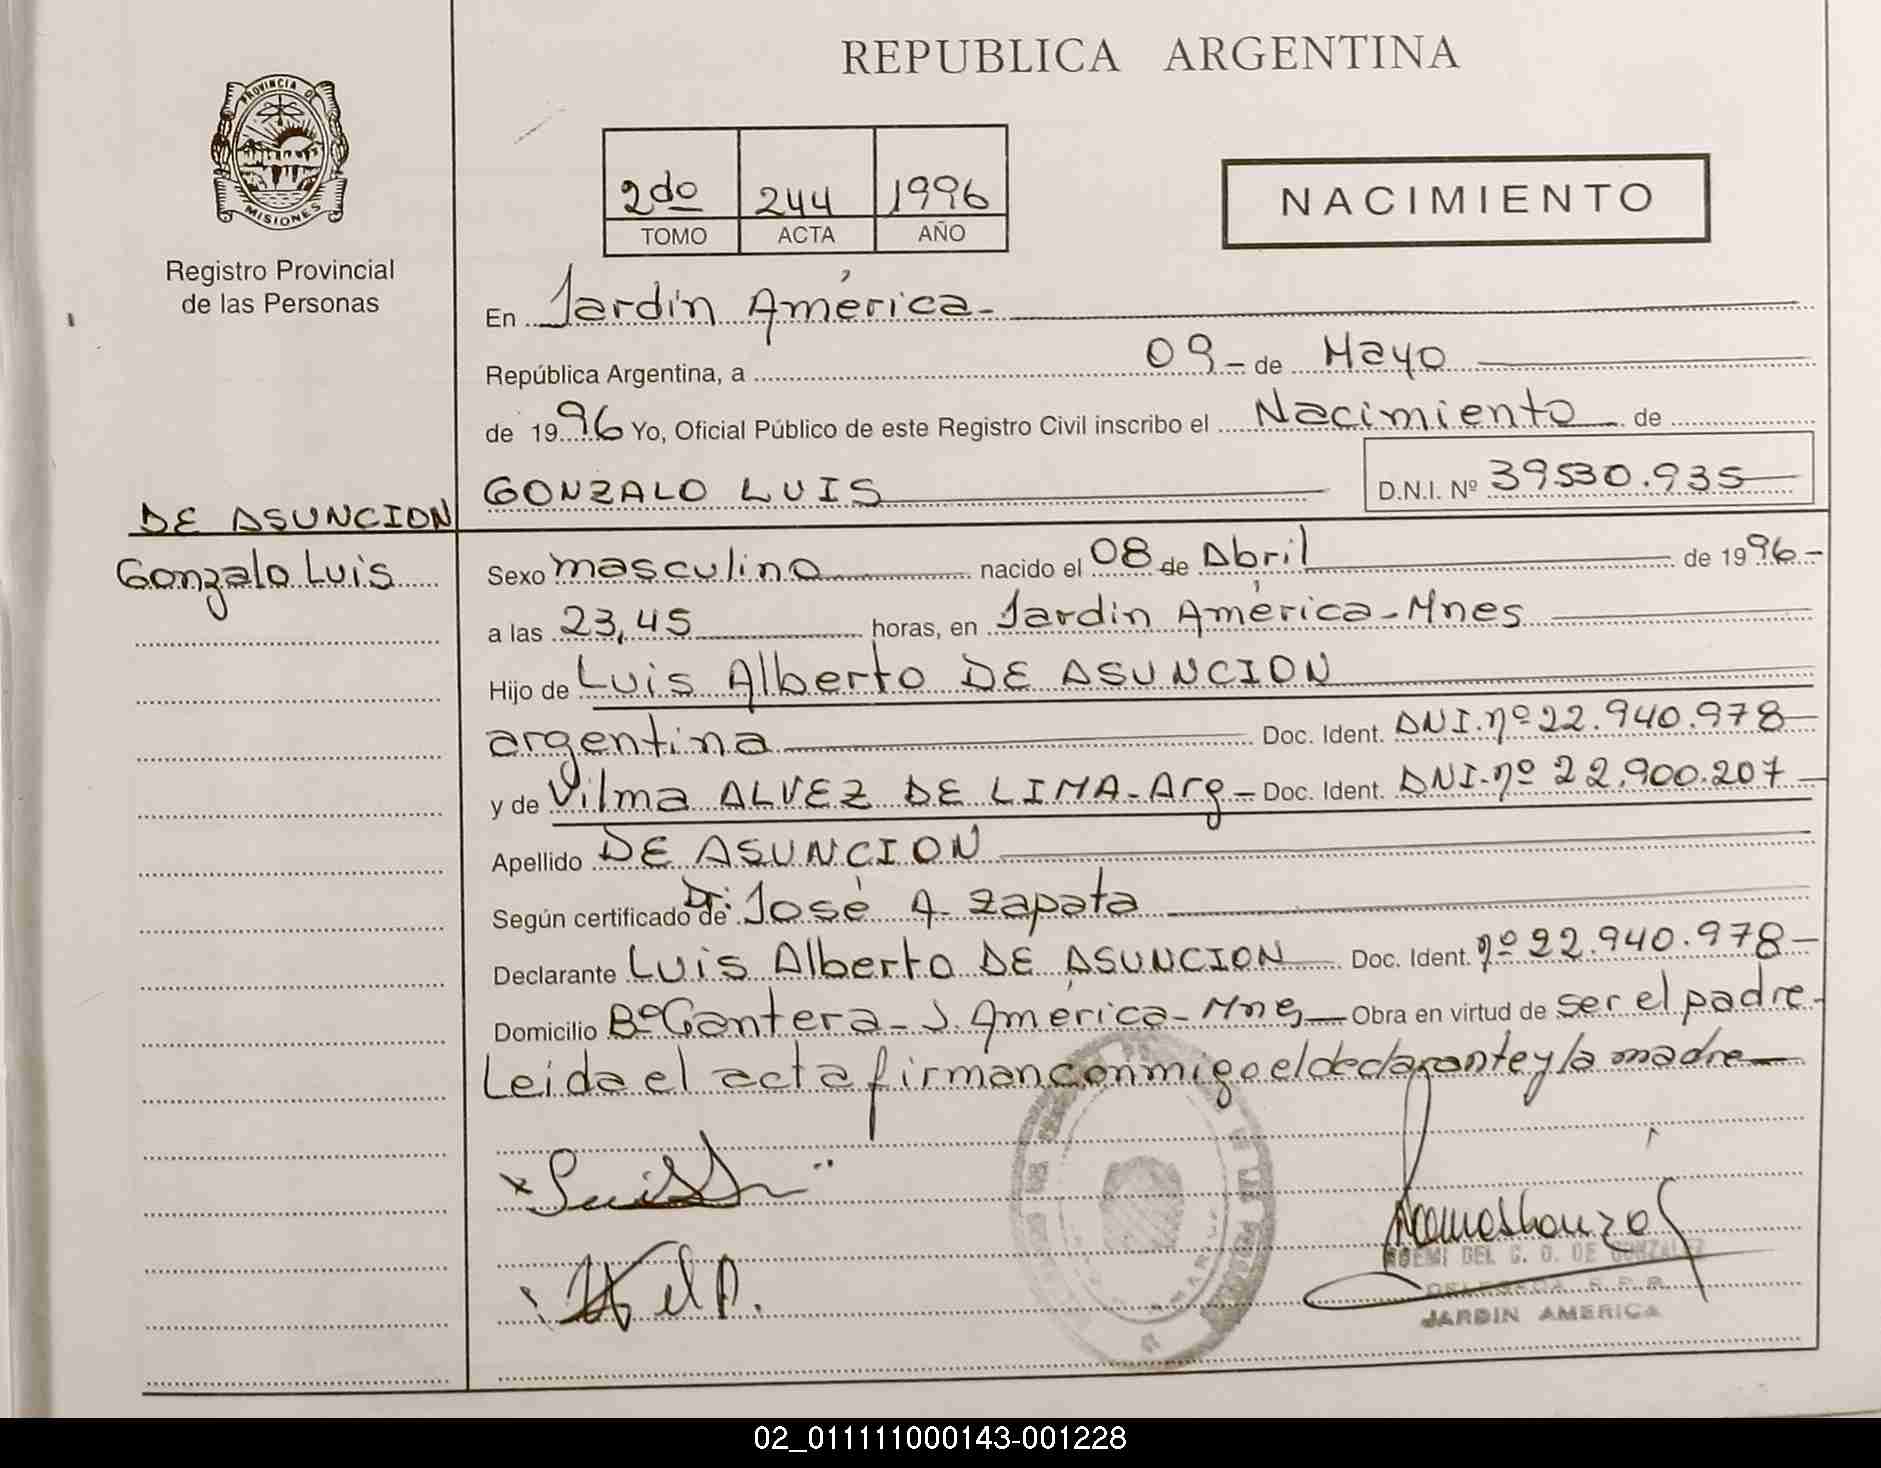 REPUBLICA ARGENTINA
PROVINCIA DE
MISIONES
Registro Provincial
de las Personas
2do 244 1996
TOMO ACTA AÑO
NACIMIENTO
En Jardín América-
República Argentina, a 09- de Mayo
de 1996 Yo, Oficial Público de este Registro Civil inscribo el Nacimiento de
GONZALO LUIS D.N.I. Nº 39530.935
DE ASUNCION
Gonzalo Luis
Sexo masculino nacido el 08 de Abril de 1996-
a las 23,45 horas, en Jardin América-Mnes
Hijo de Luis Alberto DE ASUNCION
argentina Doc. Ident. DNI.nº 22.940.978
y de Vilma ALVEZ DE LIMA-Arg- Doc. Ident. DNI-nº 22.900.207
Apellido DE ASUNCION
Según certificado de Dr. José A. Zapata
Declarante LUIS Alberto DE ASUNCION Doc. Ident. nº 22.940.978-
Domicilio Bº Cantera-J. América-Mnes Obra en virtud de ser el padre.
Leida el acta firman conmigo el declarante y la madre
NOEMI DEL C. O. DE GONZALEZ
DELEGADA R.P.P.
JARDIN AMERICA
02_011111000143-001228